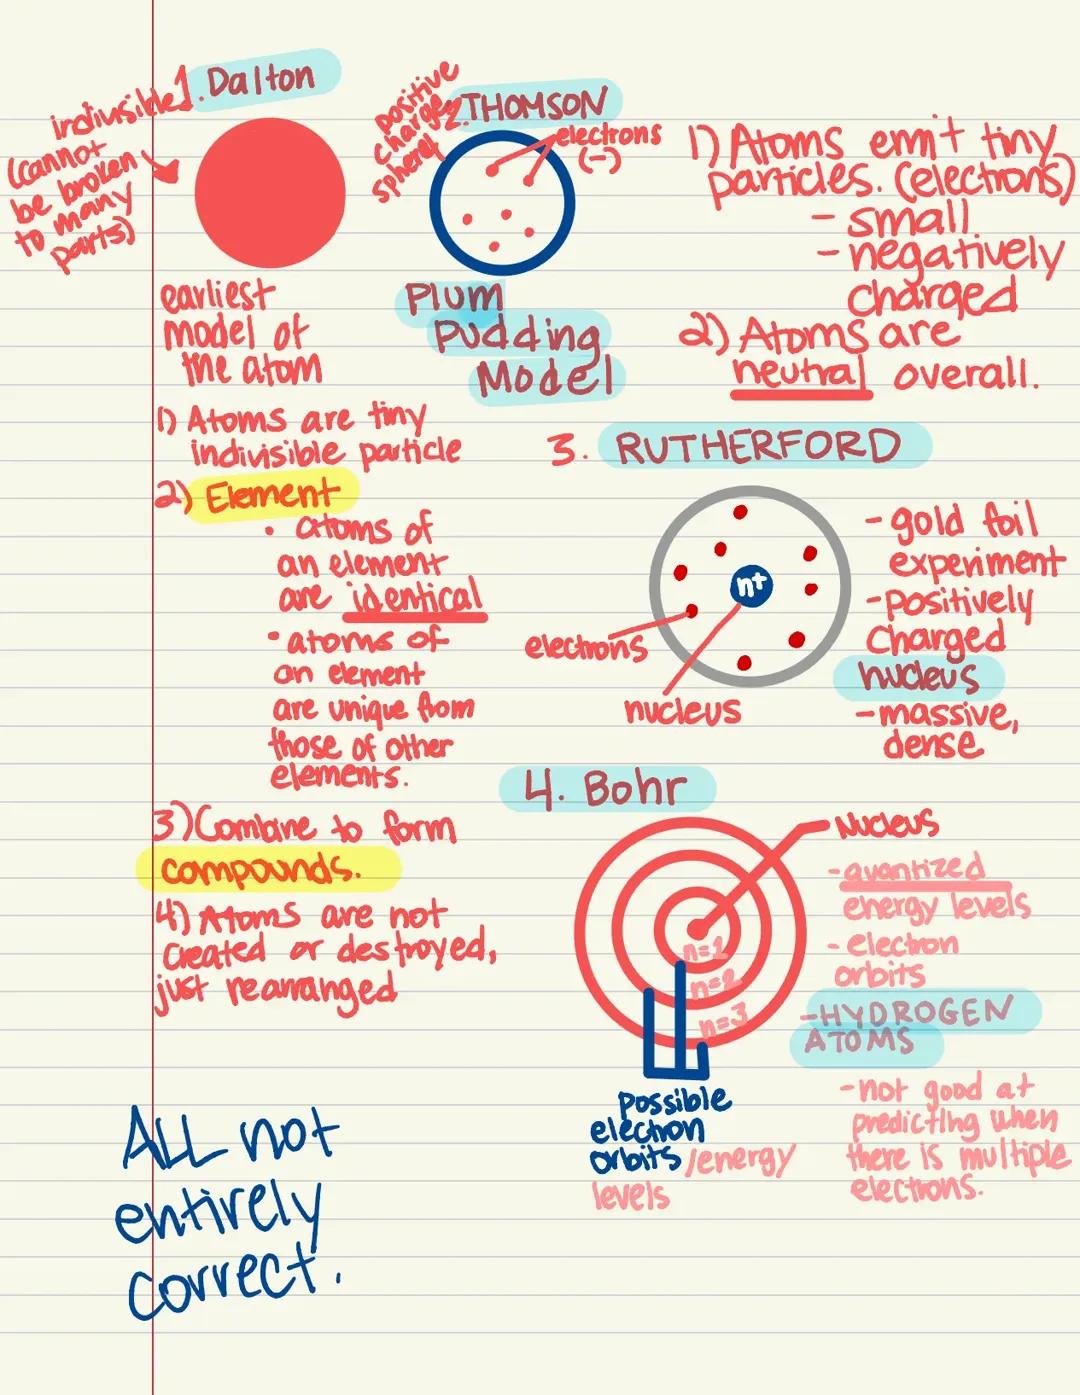 1. Dalton
indivisible
(cannot
be broken
to many
parts)
earliest
model of
the atom
1) Atoms are tiny
indivisible particle
2) Element
• atoms of
an element
are identical
• atoms of
an element
are unique from
those of other
elements.
3) Combine to form
compounds.
4) Atoms are not
created or destroyed,
just rearranged
2. THOMSON
positive
charge
sphere
electrons
(-)
Plum
Pudding
Model
1) Atoms emit tiny
particles. (electrons)
- small
- negatively
charged
2) Atoms are
neutral overall.
3. RUTHERFORD
n+
electrons
nucleus
- gold foil
experiment
- positively
charged
nucleus
- massive,
dense
4. Bohr
Nucleus
n=1
n=2
n=3
possible
electron
orbits/energy
levels
- quantized
energy levels
- electron
orbits
- HYDROGEN
ATOMS
- not good at
predicting when
there is multiple
electrons.
ALL not
entirely
correct.